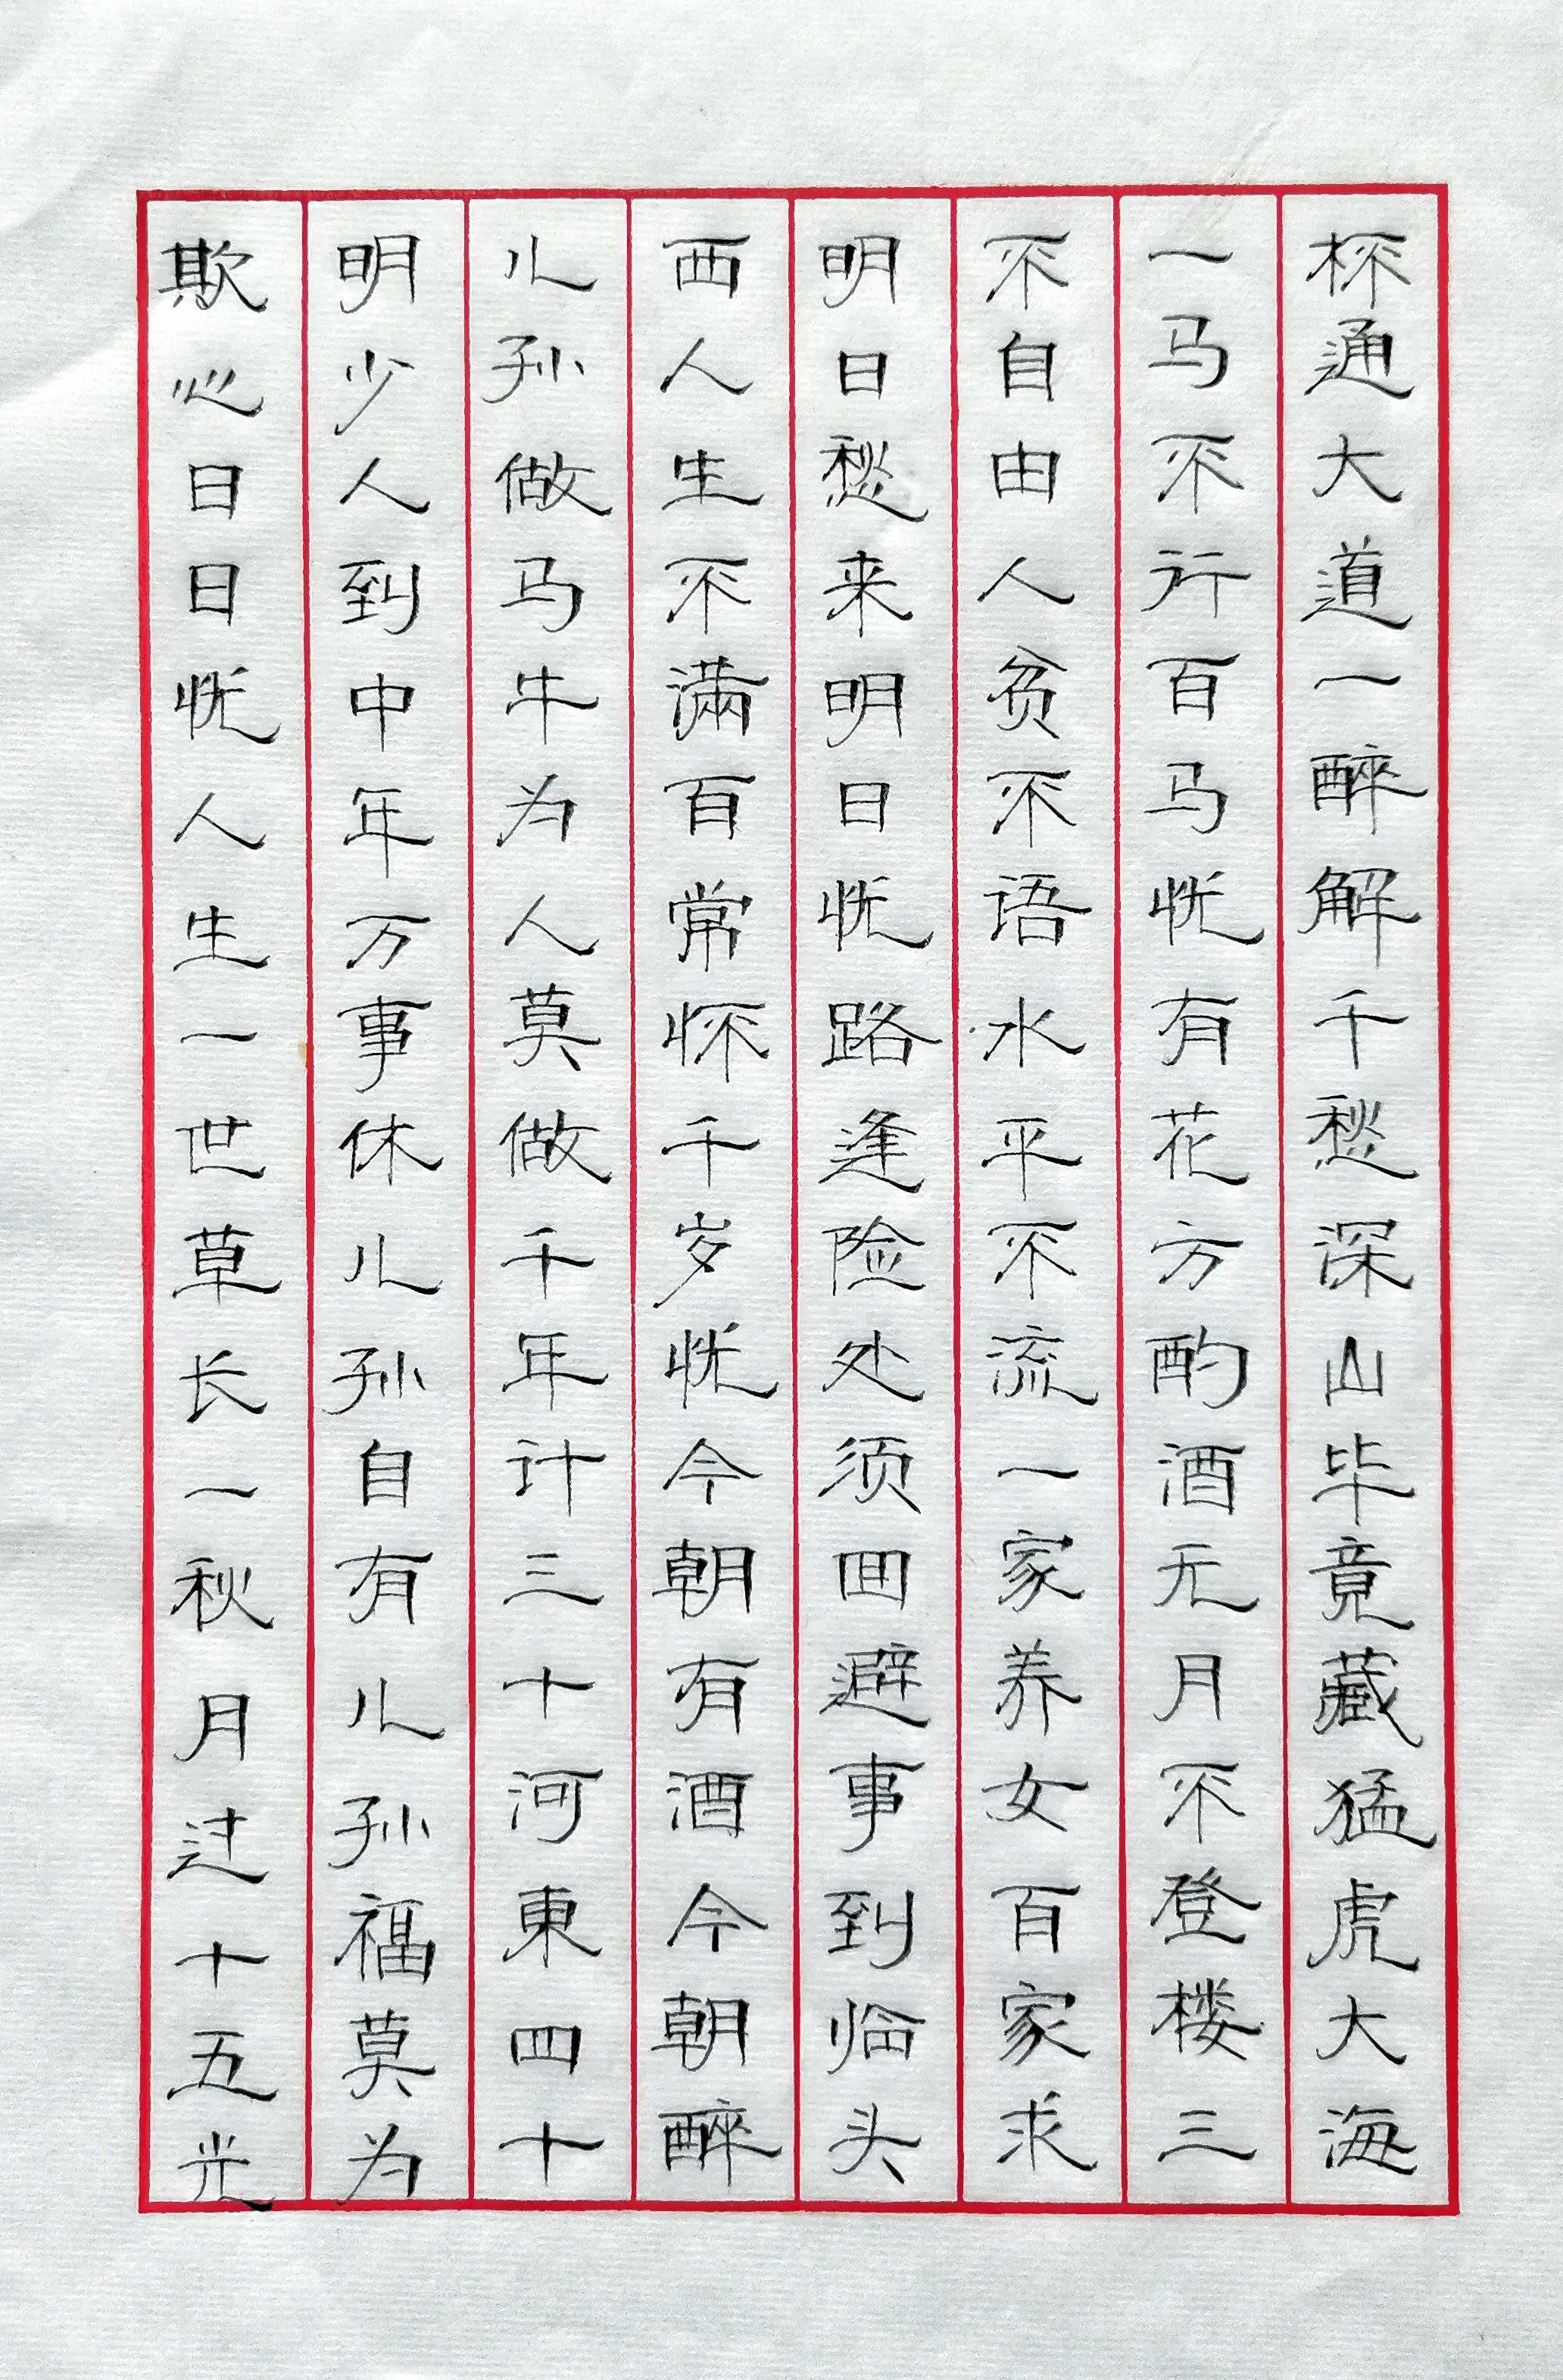 杯通大道一醉解千愁深山毕竟藏猛虎大海
一马不行百马忧有花方酌酒无月不登楼三
不自由人贫不语水平不流一家养女百家求
明日愁来明日忧路逢险处须回避事到临头
西人生不满百常怀千岁忧今朝有酒今朝醉
儿孙做马牛为人莫做千年计三十河東四十
明少人到中年万事休儿孙自有儿孙福莫为
欺心日日忧人生一世草长一秋月过十五光